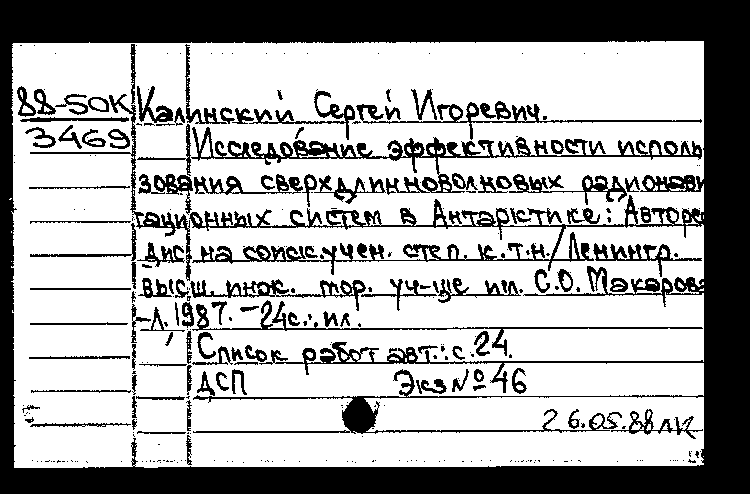 88-50К Калинский Сергей Игоревич.
3469 Исследование эффективности исполь
зования сверхдлинноволновых радионави
гационных систем в Антарктике: Авторе
дис на соиск. учен. степ. к.т.н./Ленингр.
высш. инж. мор. уч-ще им. С.О. Макарова
-Л. 1987. - 24с.: ил.
Список работ авт.: с. 24.
ДСП Экз № 46
26.05.88